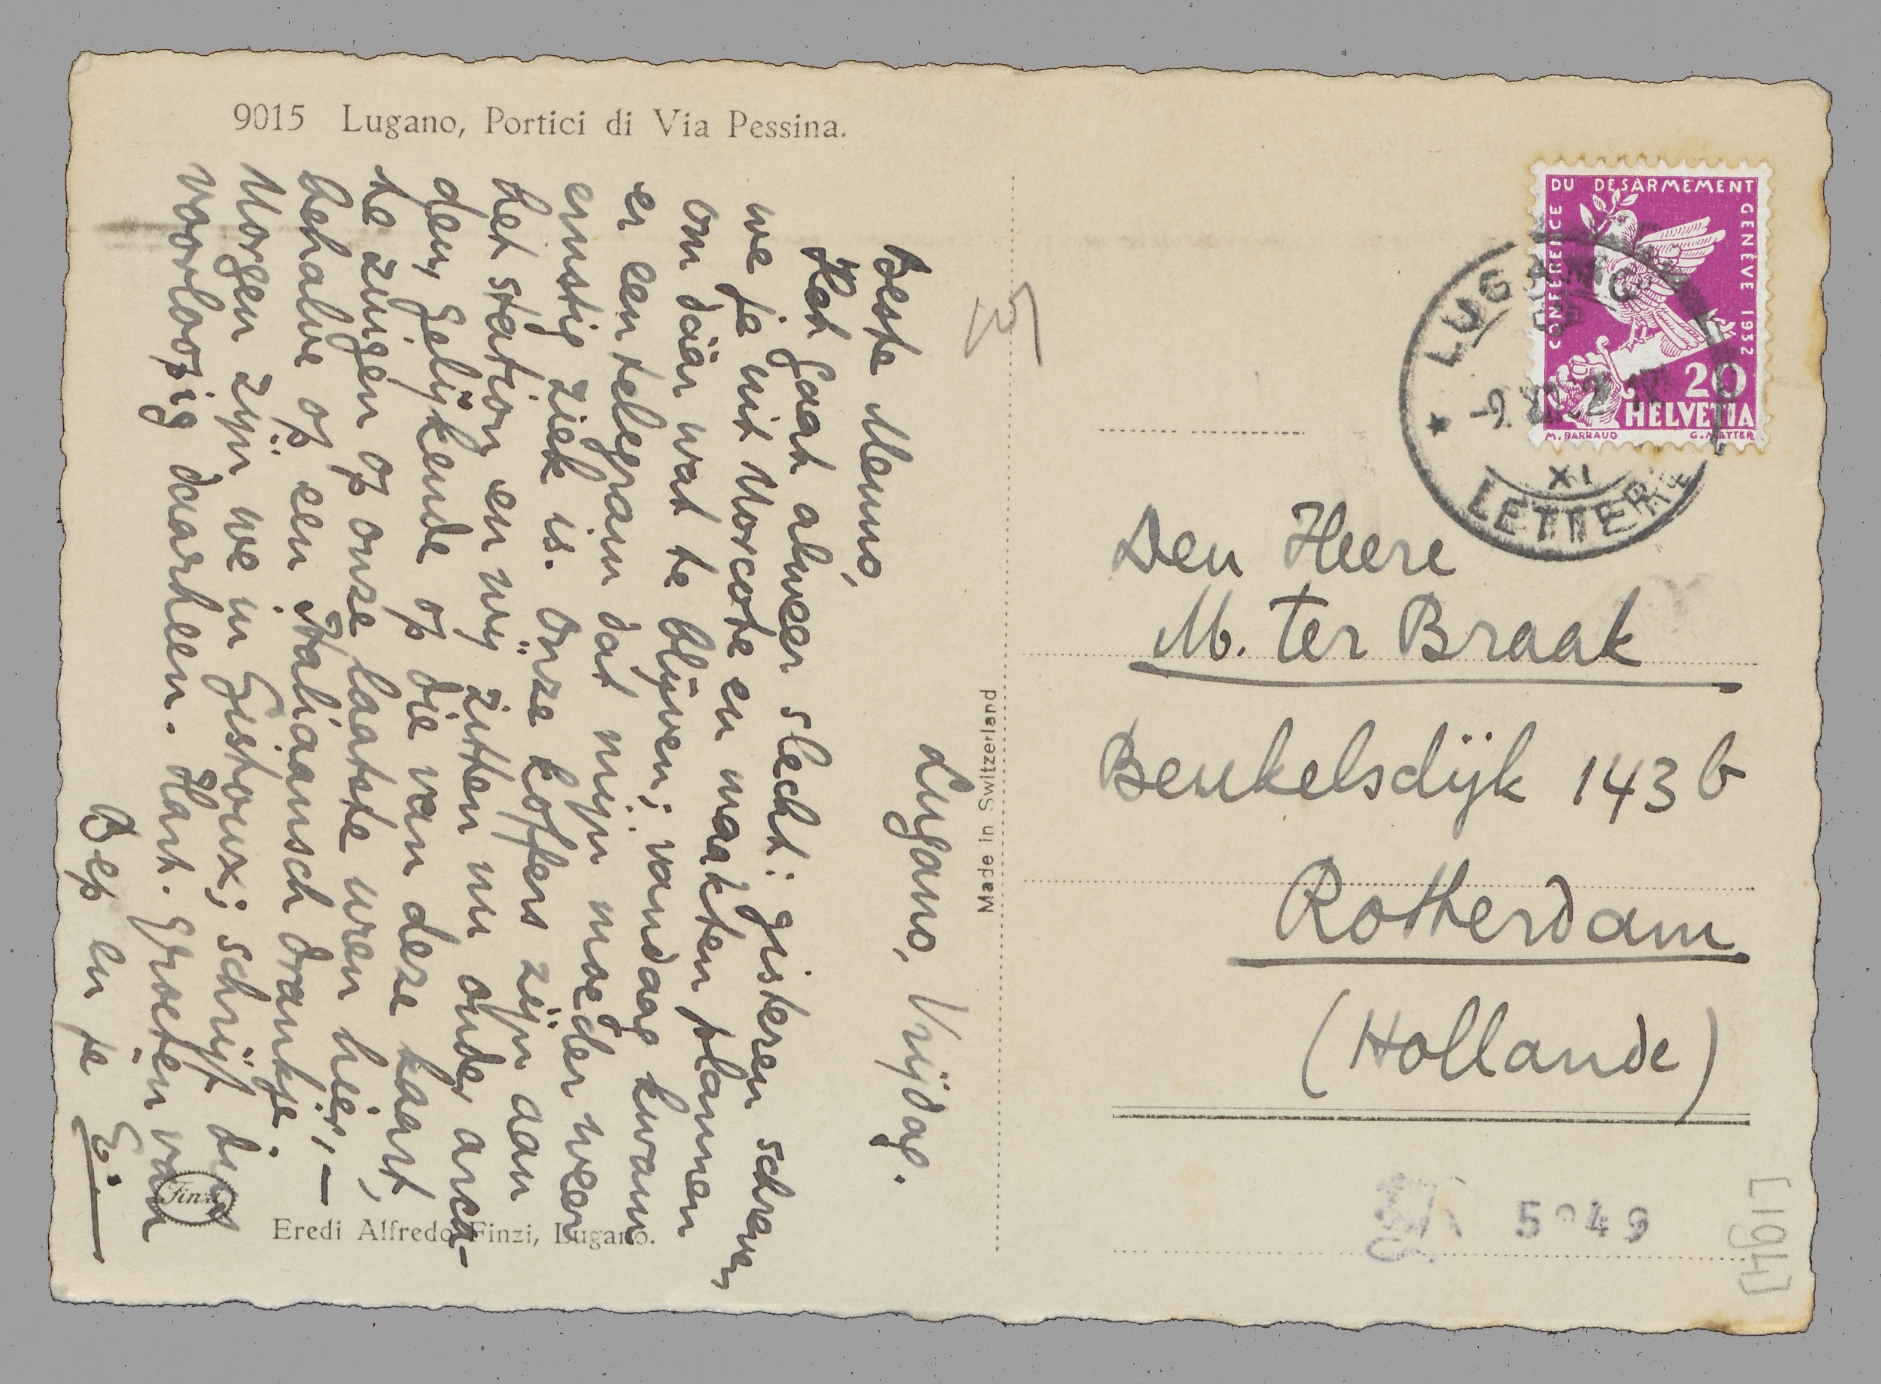 9015 Lugano, Portici di Via Pessina.
Lugano, Vrijdag.
Beste Menno,
Het gaat alweer slecht: gisteren schreven
we je uit Morcote en maakten plannen
om dáár wat te blijven; vandaag kwam
er een telegram dat mijn moeder weer
ernstig ziek is. Onze koffers zijn aan
het station en wij zitten nu onder arca-
den, gelijkende op die van deze kaart,
te zuigen op onze laatste uren hier, –
behalve op een Italiaansch drankje.
Morgen zijn we in Gistoux; schrijf dus
voorloopig daarheen. Hart. groeten van
Bep en je E.
Made in Switzerland
Finzi
Eredi Alfredo Finzi, Lugano.
CONFERENCE DU DESARMEMENT GENÈVE 1932
20
HELVETIA
M. BARRAUD G. MATTER
LUGANO
XI
LETTERE
Den Heere
M. ter Braak
Beukelsdijk 143 b
Rotterdam
(Hollande)
5049
[194]